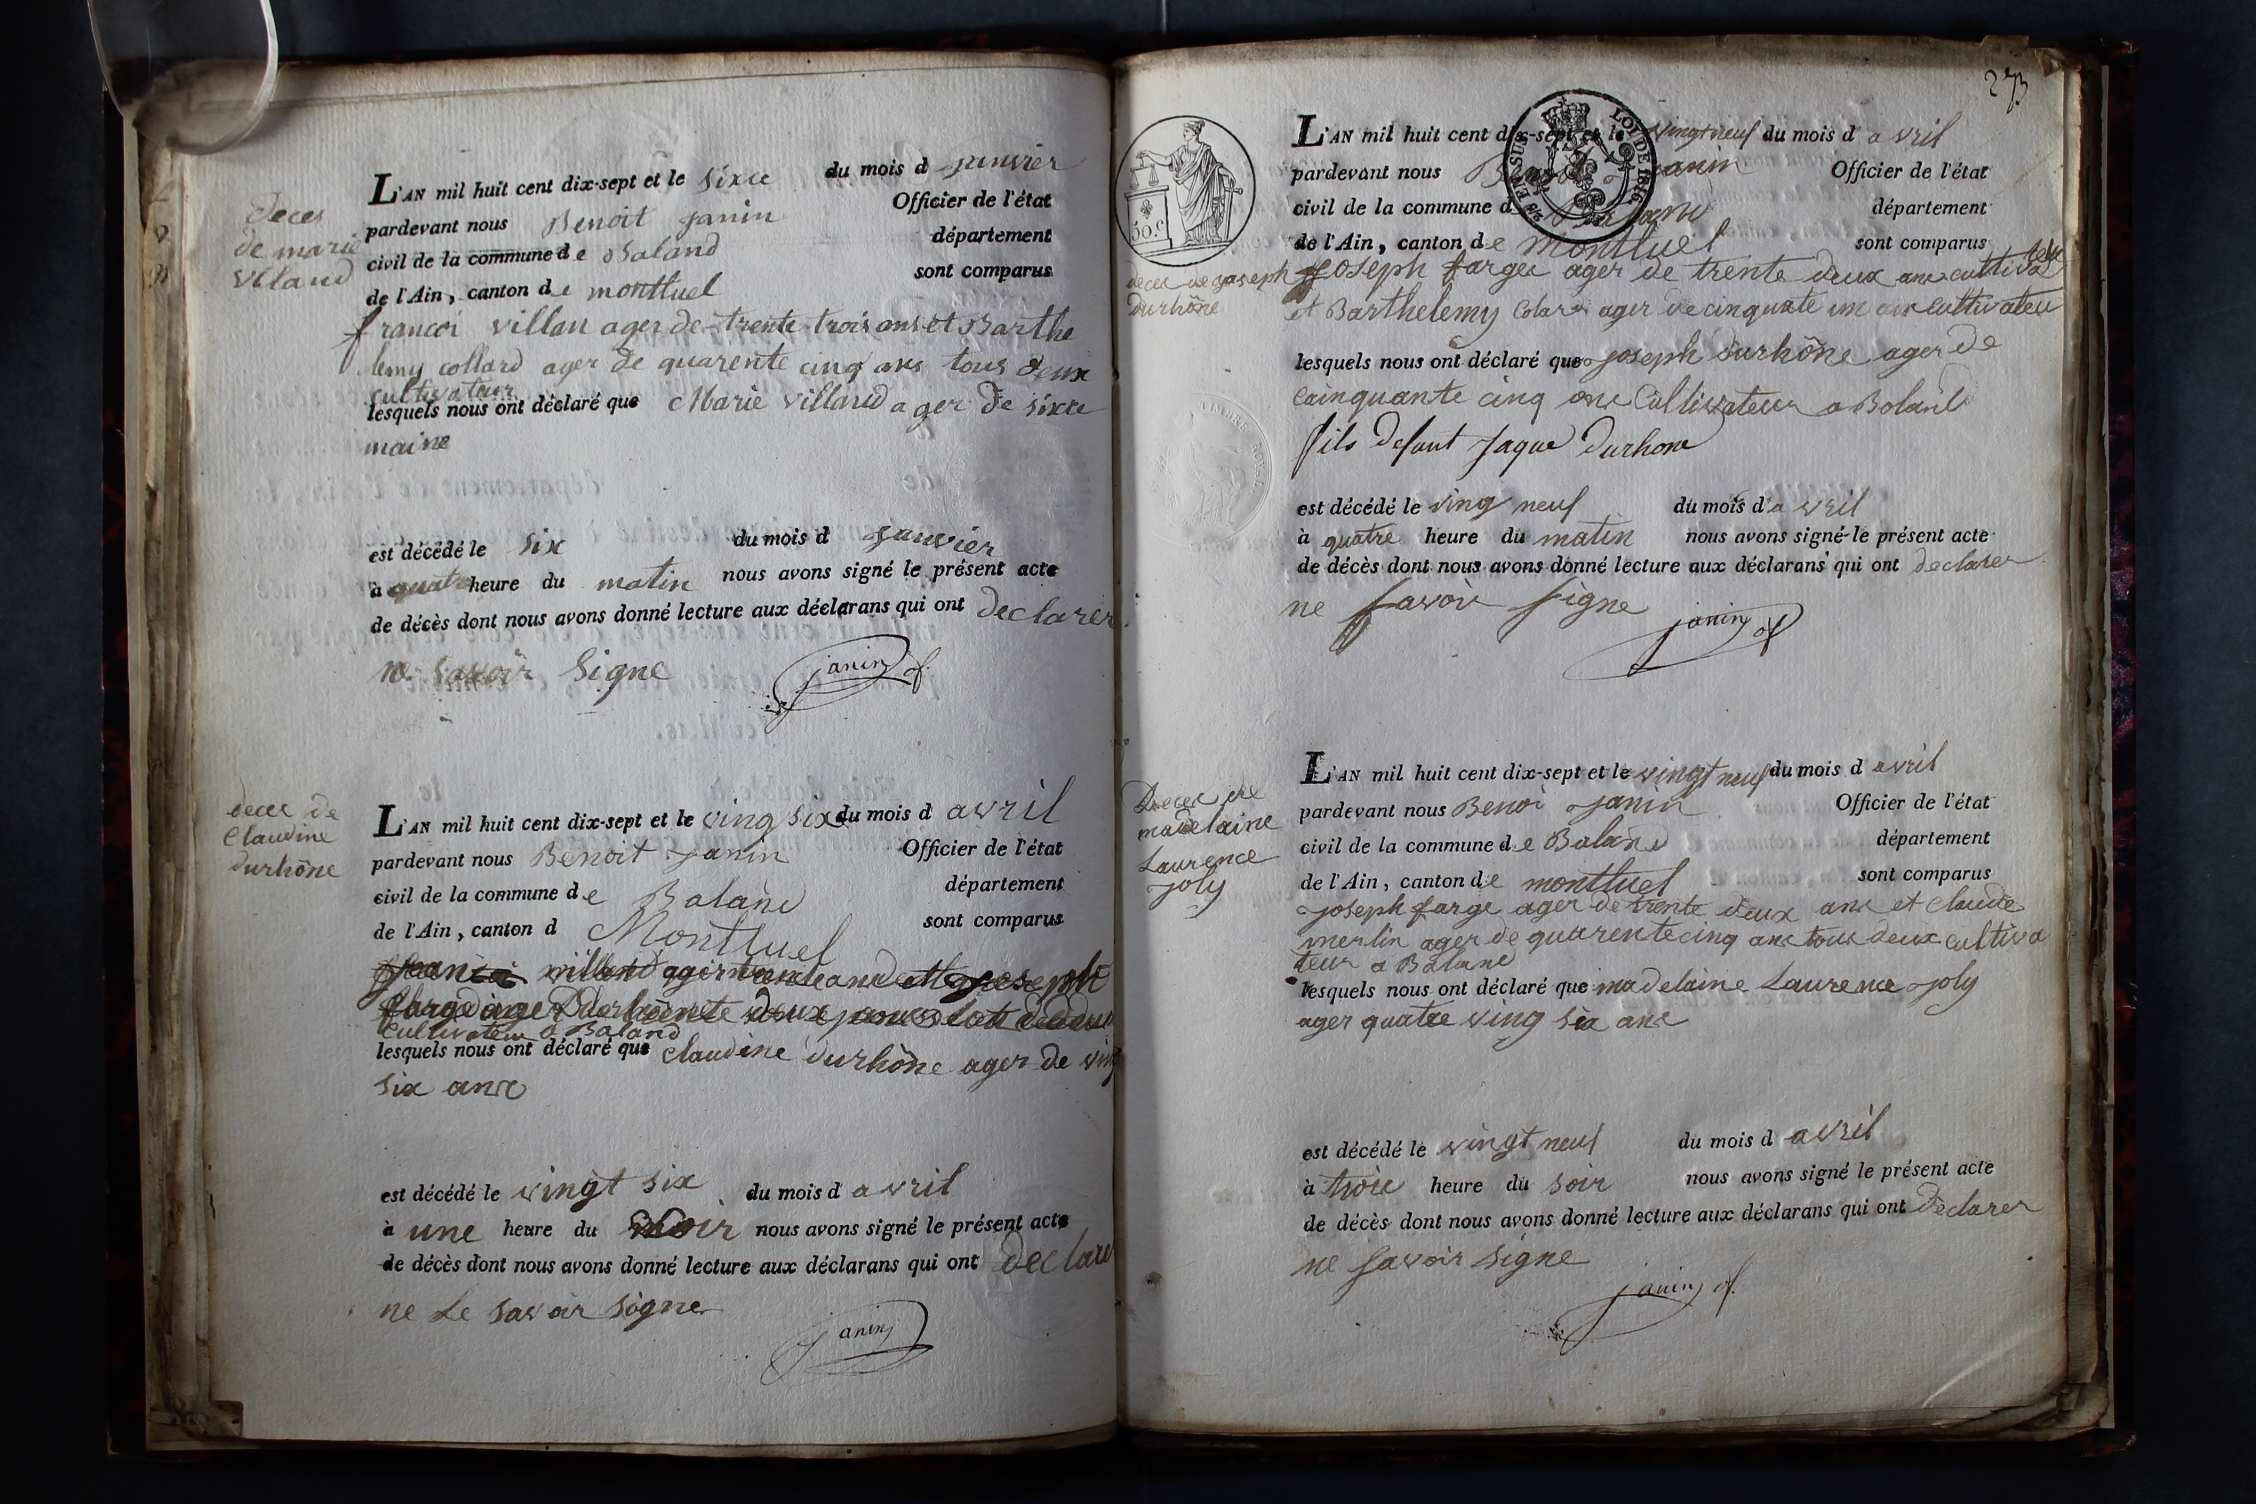 deces
de marie
Viland
L'AN mil huit cent dix-sept et le sixce du mois d janvier
pardevant nous Benoit janin Officier de l'état
civil de la commune de Baland département
de l'Ain, canton de montluel sont comparus
francoi villan ager de trente trois ans et Barthe
lemy collard ager de quarente cinq ans tous deux
cultivateur
lesquels nous ont déclaré que Marie villand ager de sixce
maine
est décédé le six du mois d janvier
à quatre heure du matin nous avons signé le présent acte
de décès dont nous avons donné lecture aux déclarans qui ont declarer
ne savoir Signe
janin of.
deces de
Claudine
durhône
L'AN mil huit cent dix-sept et le ving six du mois d avril
pardevant nous Benoit janin Officier de l'état
civil de la commune de Baland département
de l'Ain, canton d Montluel sont comparus
cultivateur a Baland
lesquels nous ont déclaré que claudine durhône ager de ving
six ans
est décédé le vingt six du mois d avril
à une heure du soir nous avons signé le présent acte
de décès dont nous avons donné lecture aux déclarans qui ont declarer
ne Le savoir signe
janin
273
50 c
EN SUS LOI DE 1816
TIMBRE ROYAL
deces de joseph
durhône
L'AN mil huit cent dix-sept et le vingt neuf du mois d avril
pardevant nous Benoi janin Officier de l'état
civil de la commune d Baland département
de l'Ain, canton de montluel sont comparus
joseph farges ager de trente deux ans cultivateur
et Barthelemy Colard ager de cinquate un ans cultivateur
lesquels nous ont déclaré que joseph durhône ager de
cainquante cinq ans Cultivateur a Boland
fils defunt jaque durhone
est décédé le ving neuf du mois d avril
à quatre heure du matin nous avons signé le présent acte
de décès dont nous avons donné lecture aux déclarans qui ont declarer
ne savoir signe
janin of
Deces de
madelaine
Laurence
joly
L'AN mil huit cent dix-sept et le vingt neuf du mois d avril
pardevant nous Benoi janin Officier de l'état
civil de la commune de Baland département
de l'Ain, canton de montluel sont comparus
joseph farge ager de trente deux ans et claude
merlin ager de quarente cinq ans tous deux cultiva
teur a Baland
lesquels nous ont déclaré que madelaine Laurence joly
ager quatre ving six ans
est décédé le vingt neuf du mois d avril
à trois heure du soir nous avons signé le présent acte
de décès dont nous avons donné lecture aux déclarans qui ont Declarer
ne savoir signe
janin of.